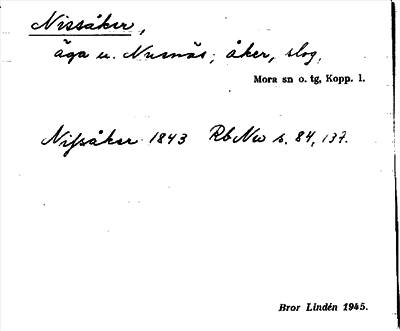 Nissåker,
äga u. Nusnäs; åker, slog.
Mora sn o. tg, Kopp. l.
Nissåker 1843 Rb Nw s. 84, 137.
Bror Lindén 1945.